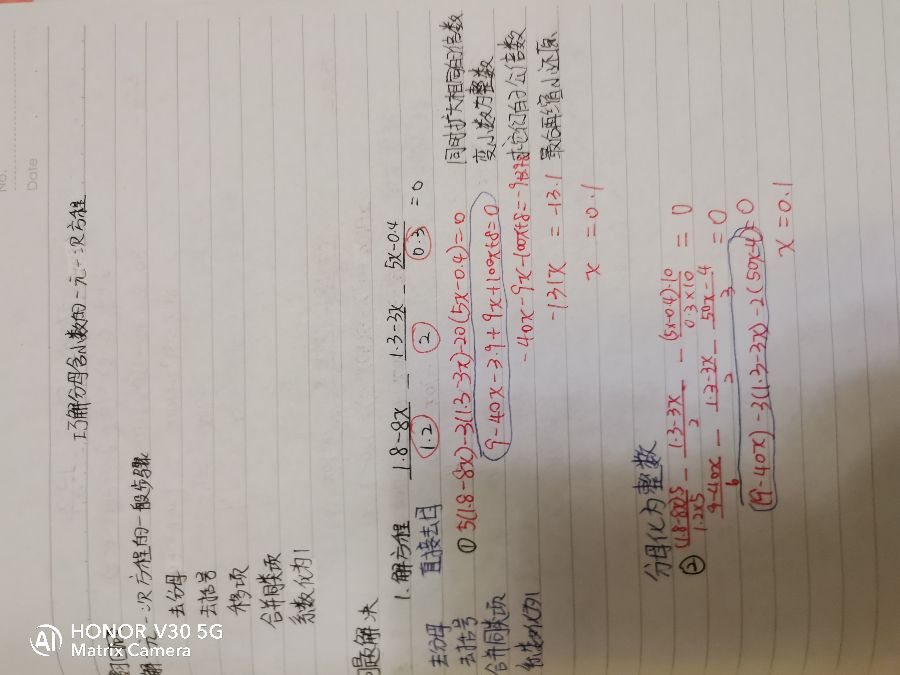 No.
Date
巧解分母含小数的一元一次方程
解一元一次方程的一般步骤
去分母
去括号
移项
合并同类项
系数化为1
问题解决
1. 解方程 (1.8-8x)/1.2 - (1.3-3x)/2 - (5x-0.4)/0.3 = 0
直接去分母
去分母
去括号
合并同类项
系数化为1
① 5(1.8-8x)-3(1.3-3x)-20(5x-0.4)=0
9-40x-3.9+9x+100x+8=0
-131x = -13.1
x = 0.1
同时扩大相同的倍数
变小数为整数
最后再缩小还原
分母化为整数
② (1.8-8x)5/1.2×5 - (1.3-3x)/2 - (5x-0.4)·10/0.3×10 = 0
(9-40x)/6 - (1.3-3x)/2 - (50x-4)/3 = 0
(9-40x)-3(1.3-3x)-2(50x-4)=0
x=0.1
HONOR V30 5G
Matrix Camera